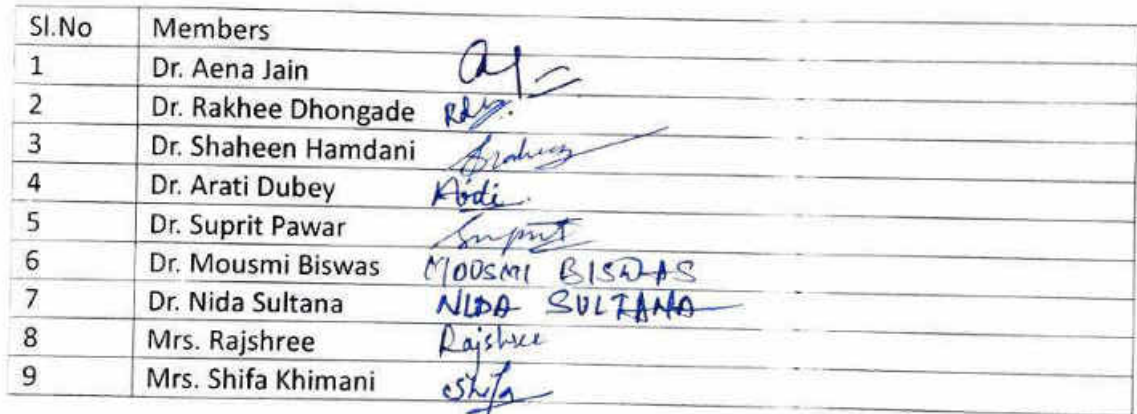 Sl.No Members
1 Dr. Aena Jain
2 Dr. Rakhee Dhongade
3 Dr. Shaheen Hamdani Shaheen
4 Dr. Arati Dubey
5 Dr. Suprit Pawar Suprit
6 Dr. Mousmi Biswas MOUSMI BISWAS
7 Dr. Nida Sultana NIDA SULTANA
8 Mrs. Rajshree Rajshree
9 Mrs. Shifa Khimani Shifa